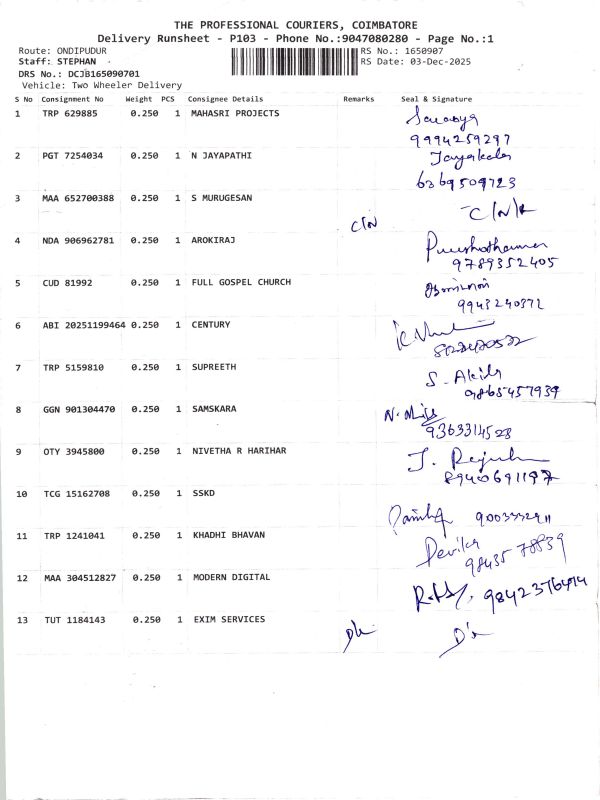 THE PROFESSIONAL COURIERS, COIMBATORE
Delivery Runsheet - P103 - Phone No.:9047080280 - Page No.:1
Route: ONDIPUDUR RS No.: 1650907
Staff: STEPHAN RS Date: 03-Dec-2025
DRS No.: DCJB165090701
Vehicle: Two Wheeler Delivery
S No Consignment No Weight PCS Consignee Details Remarks Seal & Signature
1 TRP 629885 0.250 1 MAHASRI PROJECTS
9994259297
2 PGT 7254034 0.250 1 N JAYAPATHI
6369509723
3 MAA 652700388 0.250 1 S MURUGESAN
4 NDA 906962781 0.250 1 AROKIRAJ
9789352405
5 CUD 81992 0.250 1 FULL GOSPEL CHURCH
9943240372
6 ABI 20251199464 0.250 1 CENTURY
7 TRP 5159810 0.250 1 SUPREETH
S. Akila
9865457939
8 GGN 901304470 0.250 1 SAMSKARA
9363314528
9 OTY 3945800 0.250 1 NIVETHA R HARIHAR
8940691197
10 TCG 15162708 0.250 1 SSKD
11 TRP 1241041 0.250 1 KHADHI BHAVAN
Devika
98435 78839
12 MAA 304512827 0.250 1 MODERN DIGITAL
13 TUT 1184143 0.250 1 EXIM SERVICES